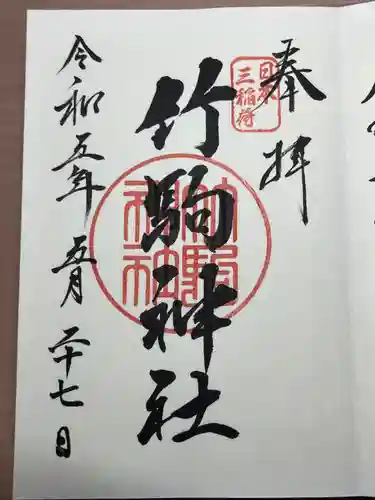 奉拝
日本
三稲荷
竹駒神社
竹駒
神社
令和五年五月二十七日